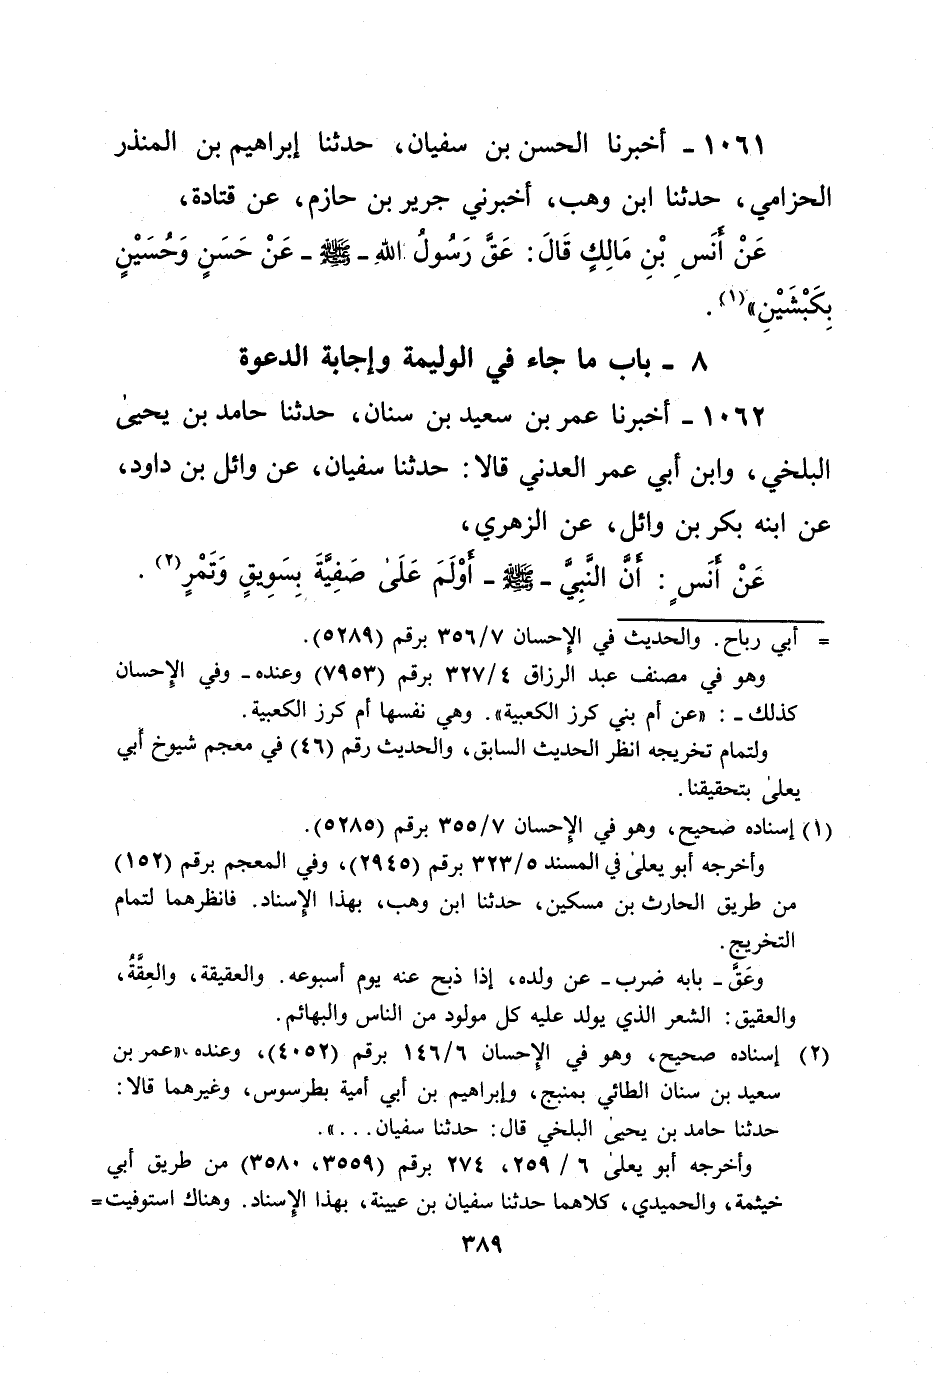 ١٠٦١ - أخبرنا الحسن بن سفيان، حدثنا إبراهيم بن المنذر
الحزامي، حدثنا ابن وهب، أخبرني جرير بن حازم، عن قتادة،
عَنْ أَنَسِ بْنِ مَالِكٍ قَالَ: عَقَّ رَسُولُ اللهِ - ﷺ - عَنْ حَسَنٍ وَحُسَيْنٍ
بِكَبْشَيْنِ»(١).
٨ - باب ما جاء في الوليمة وإجابة الدعوة
١٠٦٢ - أخبرنا عمر بن سعيد بن سنان، حدثنا حامد بن يحيىٰ
البلخي، وابن أبي عمر العدني قالا: حدثنا سفيان، عن وائل بن داود،
عن ابنه بكر بن وائل، عن الزهري،
عَنْ أَنَسٍ: أَنَّ النَّبِيَّ - ﷺ - أَوْلَمَ عَلَىٰ صَفِيَّةَ بِسَوِيقٍ وَتَمْرٍ(٢).
= أبي رباح. والحديث في الإحسان ٣٥٦/٧ برقم (٥٢٨٩).
وهو في مصنف عبد الرزاق ٣٢٧/٤ برقم (٧٩٥٣) وعنده - وفي الإحسان
كذلك - : «عن أم بني كرز الكعبية». وهي نفسها أم كرز الكعبية.
ولتمام تخريجه انظر الحديث السابق، والحديث رقم (٤٦) في معجم شيوخ أبي
يعلىٰ بتحقيقنا.
(١) إسناده صحيح، وهو في الإحسان ٣٥٥/٧ برقم (٥٢٨٥).
وأخرجه أبو يعلىٰ في المسند ٣٢٣/٥ برقم (٢٩٤٥)، وفي المعجم برقم (١٥٢)
من طريق الحارث بن مسكين، حدثنا ابن وهب، بهذا الإسناد. فانظرهما لتمام
التخريج.
وعَقَّ - بابه ضرب - عن ولده، إذا ذبح عنه يوم أسبوعه. والعقيقة، والعِقَّةُ،
والعقيق: الشعر الذي يولد عليه كل مولود من الناس والبهائم.
(٢) إسناده صحيح، وهو في الإحسان ١٤٦/٦ برقم (٤٠٥٢)، وعنده «عمر بن
سعيد بن سنان الطائي بمنبج، وإبراهيم بن أبي أمية بطرسوس، وغيرهما قالا:
حدثنا حامد بن يحيىٰ البلخي قال: حدثنا سفيان...».
وأخرجه أبو يعلىٰ ٦ / ٢٥٩، ٢٧٤ برقم (٣٥٥٩، ٣٥٨٠) من طريق أبي
خيثمة، والحميدي، كلاهما حدثنا سفيان بن عيينة، بهذا الإسناد. وهناك استوفيت =
٣٨٩